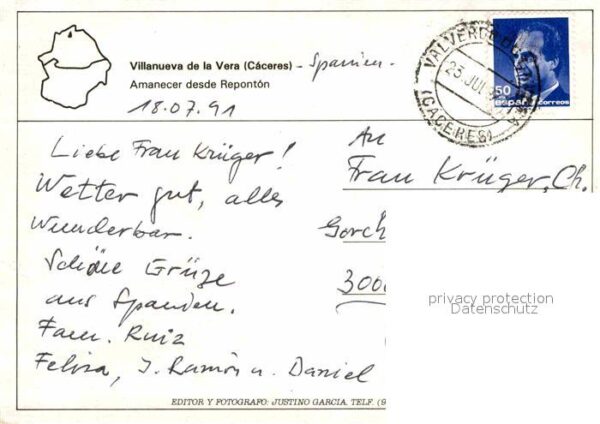 Villanueva de la Vera (Cáceres) - Spanien.
Amanecer desde Repontón
18.07.91
VALVERDE
25 JUL
(CACERES)
50
España correos
An
Frau Krüger, Ch.
Gorch
300
Liebe Frau Krüger!
Wetter gut, alles
Wunderbar.
Schöne Grüze
aus Spanien.
Fam. Ruiz
Felisa, J. Ramón u. Daniel
privacy protection
Datenschutz
EDITOR Y FOTOGRAFO: JUSTINO GARCIA. TELF. (9